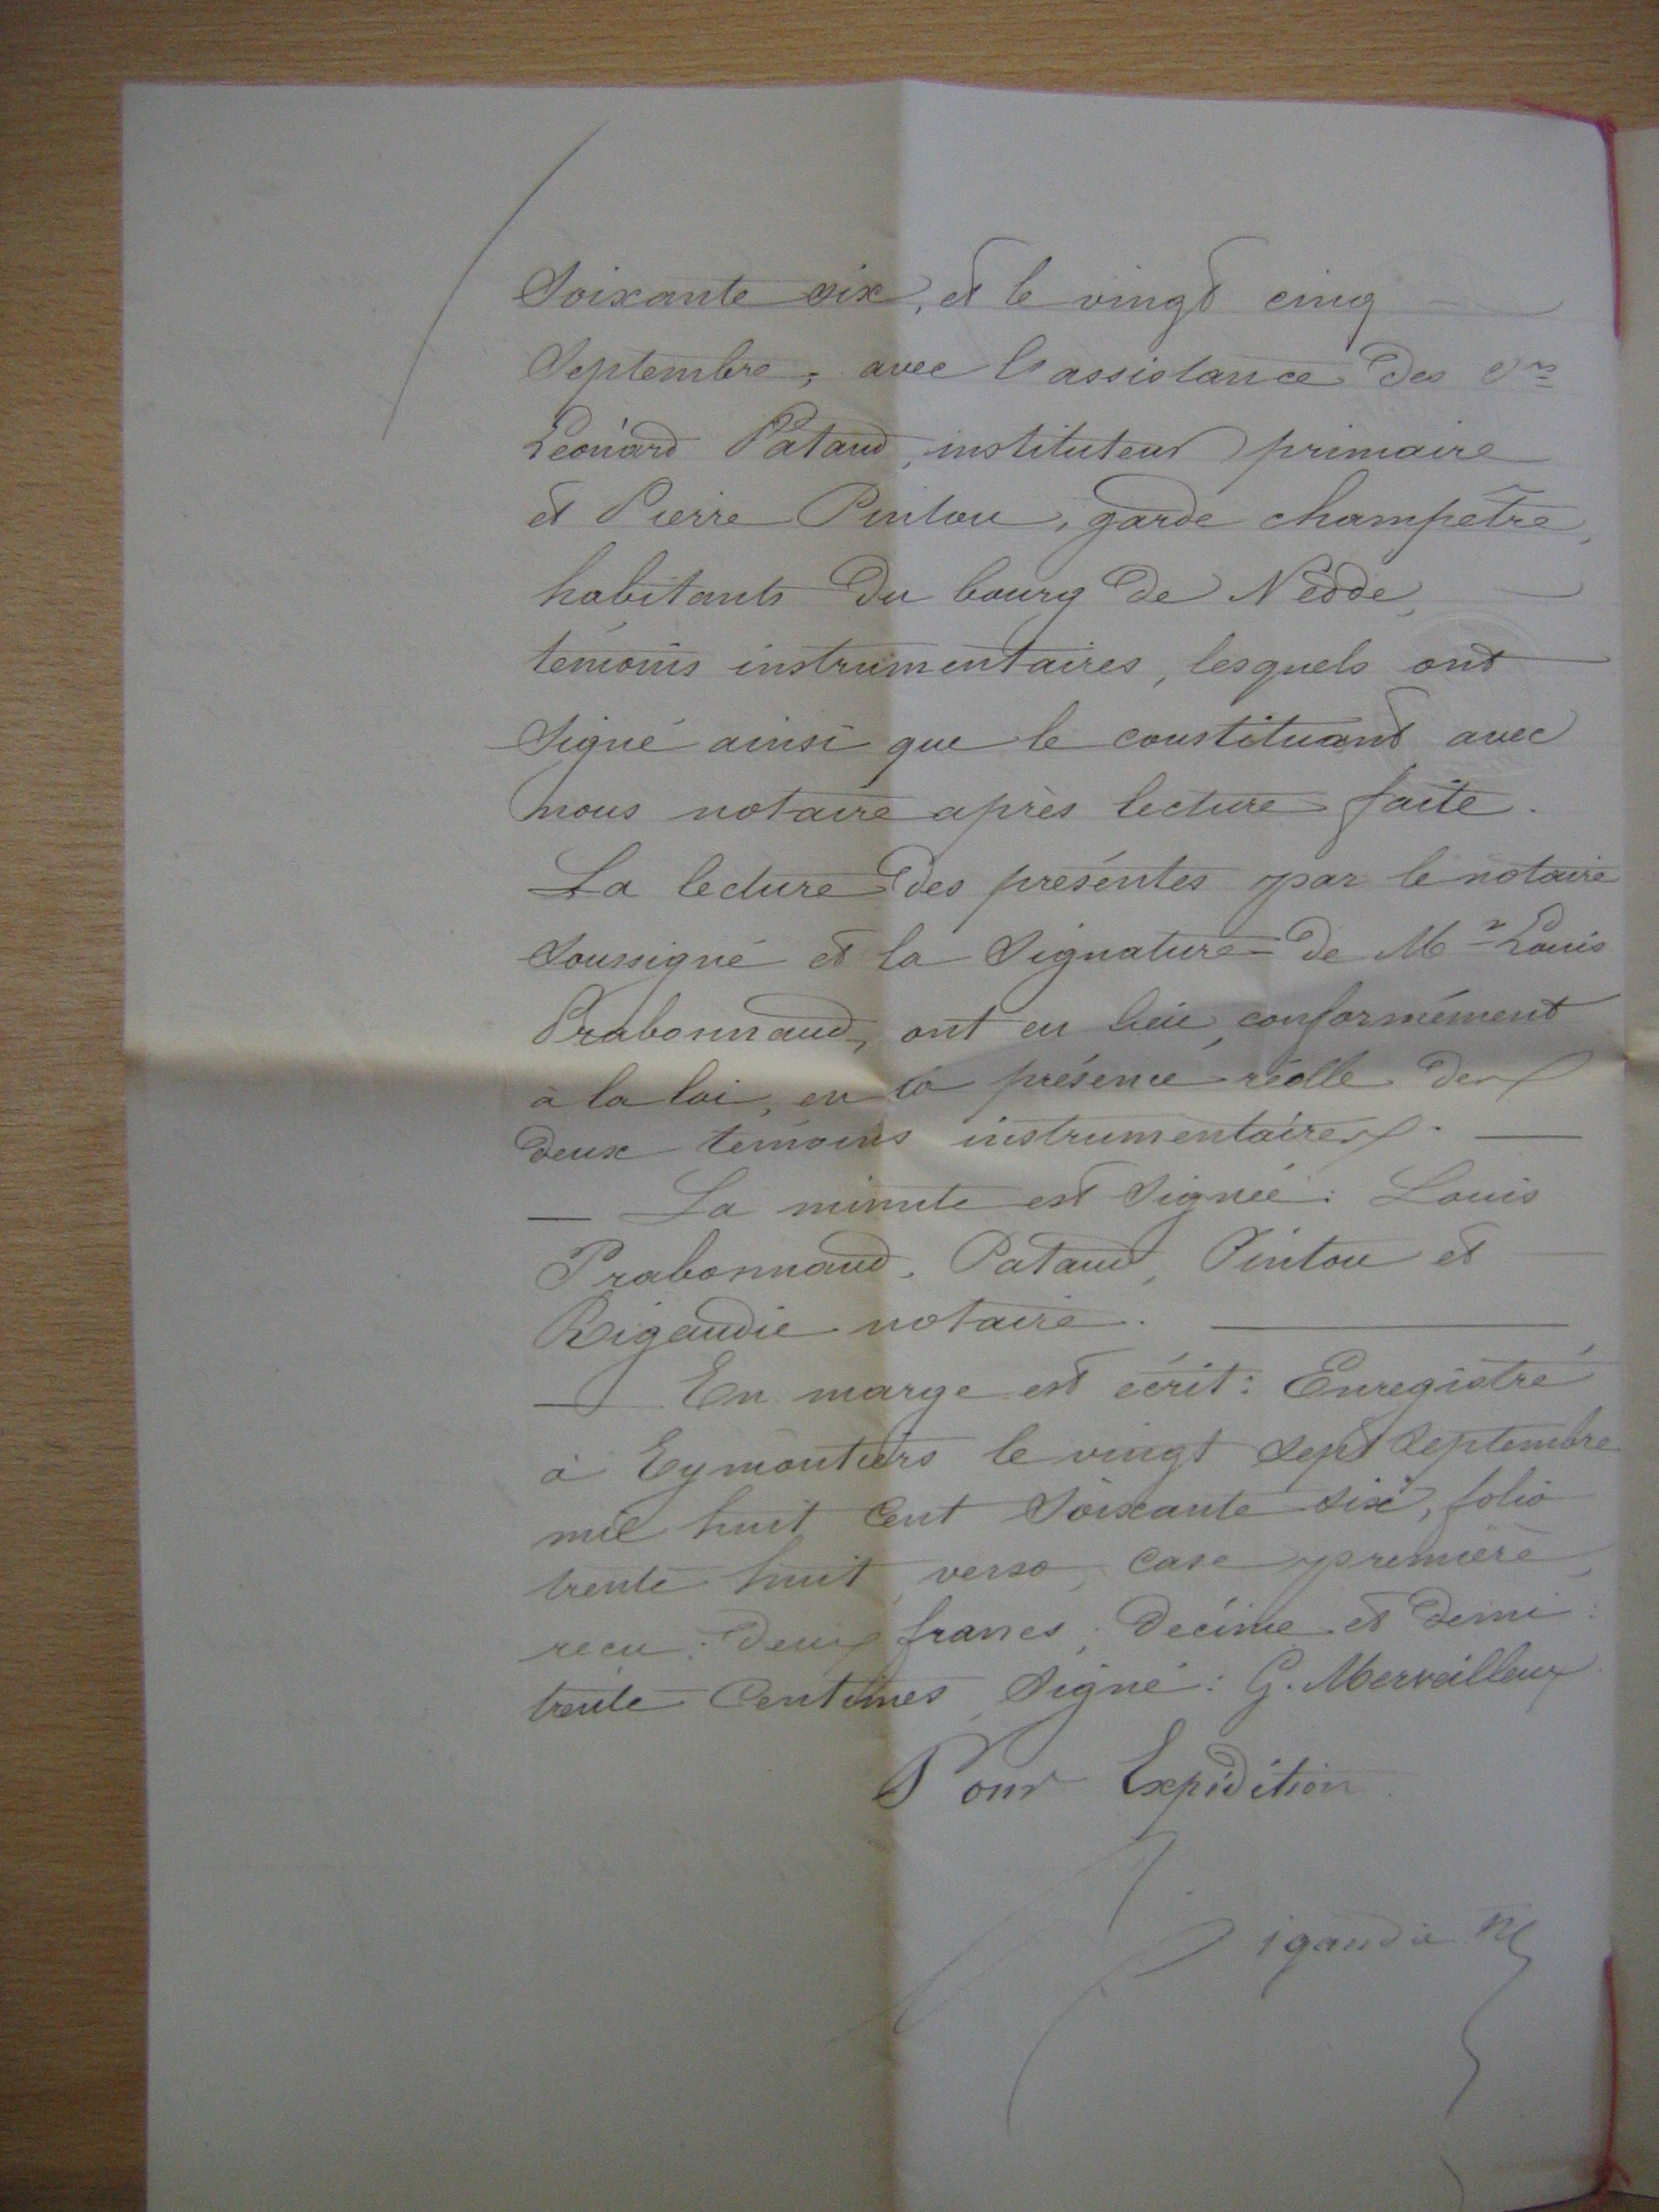 Soixante six, et le vingt cinq
Septembre; avec l'assistance des Srs
Léonard Pataud, instituteur primaire
et Pierre Pinlou, garde champêtre,
habitants du bourg de Nedde,
témoins instrumentaires, lesquels ont
signé ainsi que le constituant avec
nous notaire après lecture faite.
La lecture des présentes par le notaire
soussigné et la signature de Mr Louis
Prabonnaud, ont eu lieu, conformément
à la loi, en la présence réelle des
deux témoins instrumentaires. —
— La minute est signée: Louis
Prabonnaud. Pataud, Pinlou et
Rigaudie notaire.
— En marge est écrit: Enregistré
à Eymoutiers le vingt sept septembre
mil huit cent soixante six, folio
trente huit, verso, case première,
reçu: deux francs, décime et demi:
trente centimes, signé: G.
Pour Expédition
Rigaudie